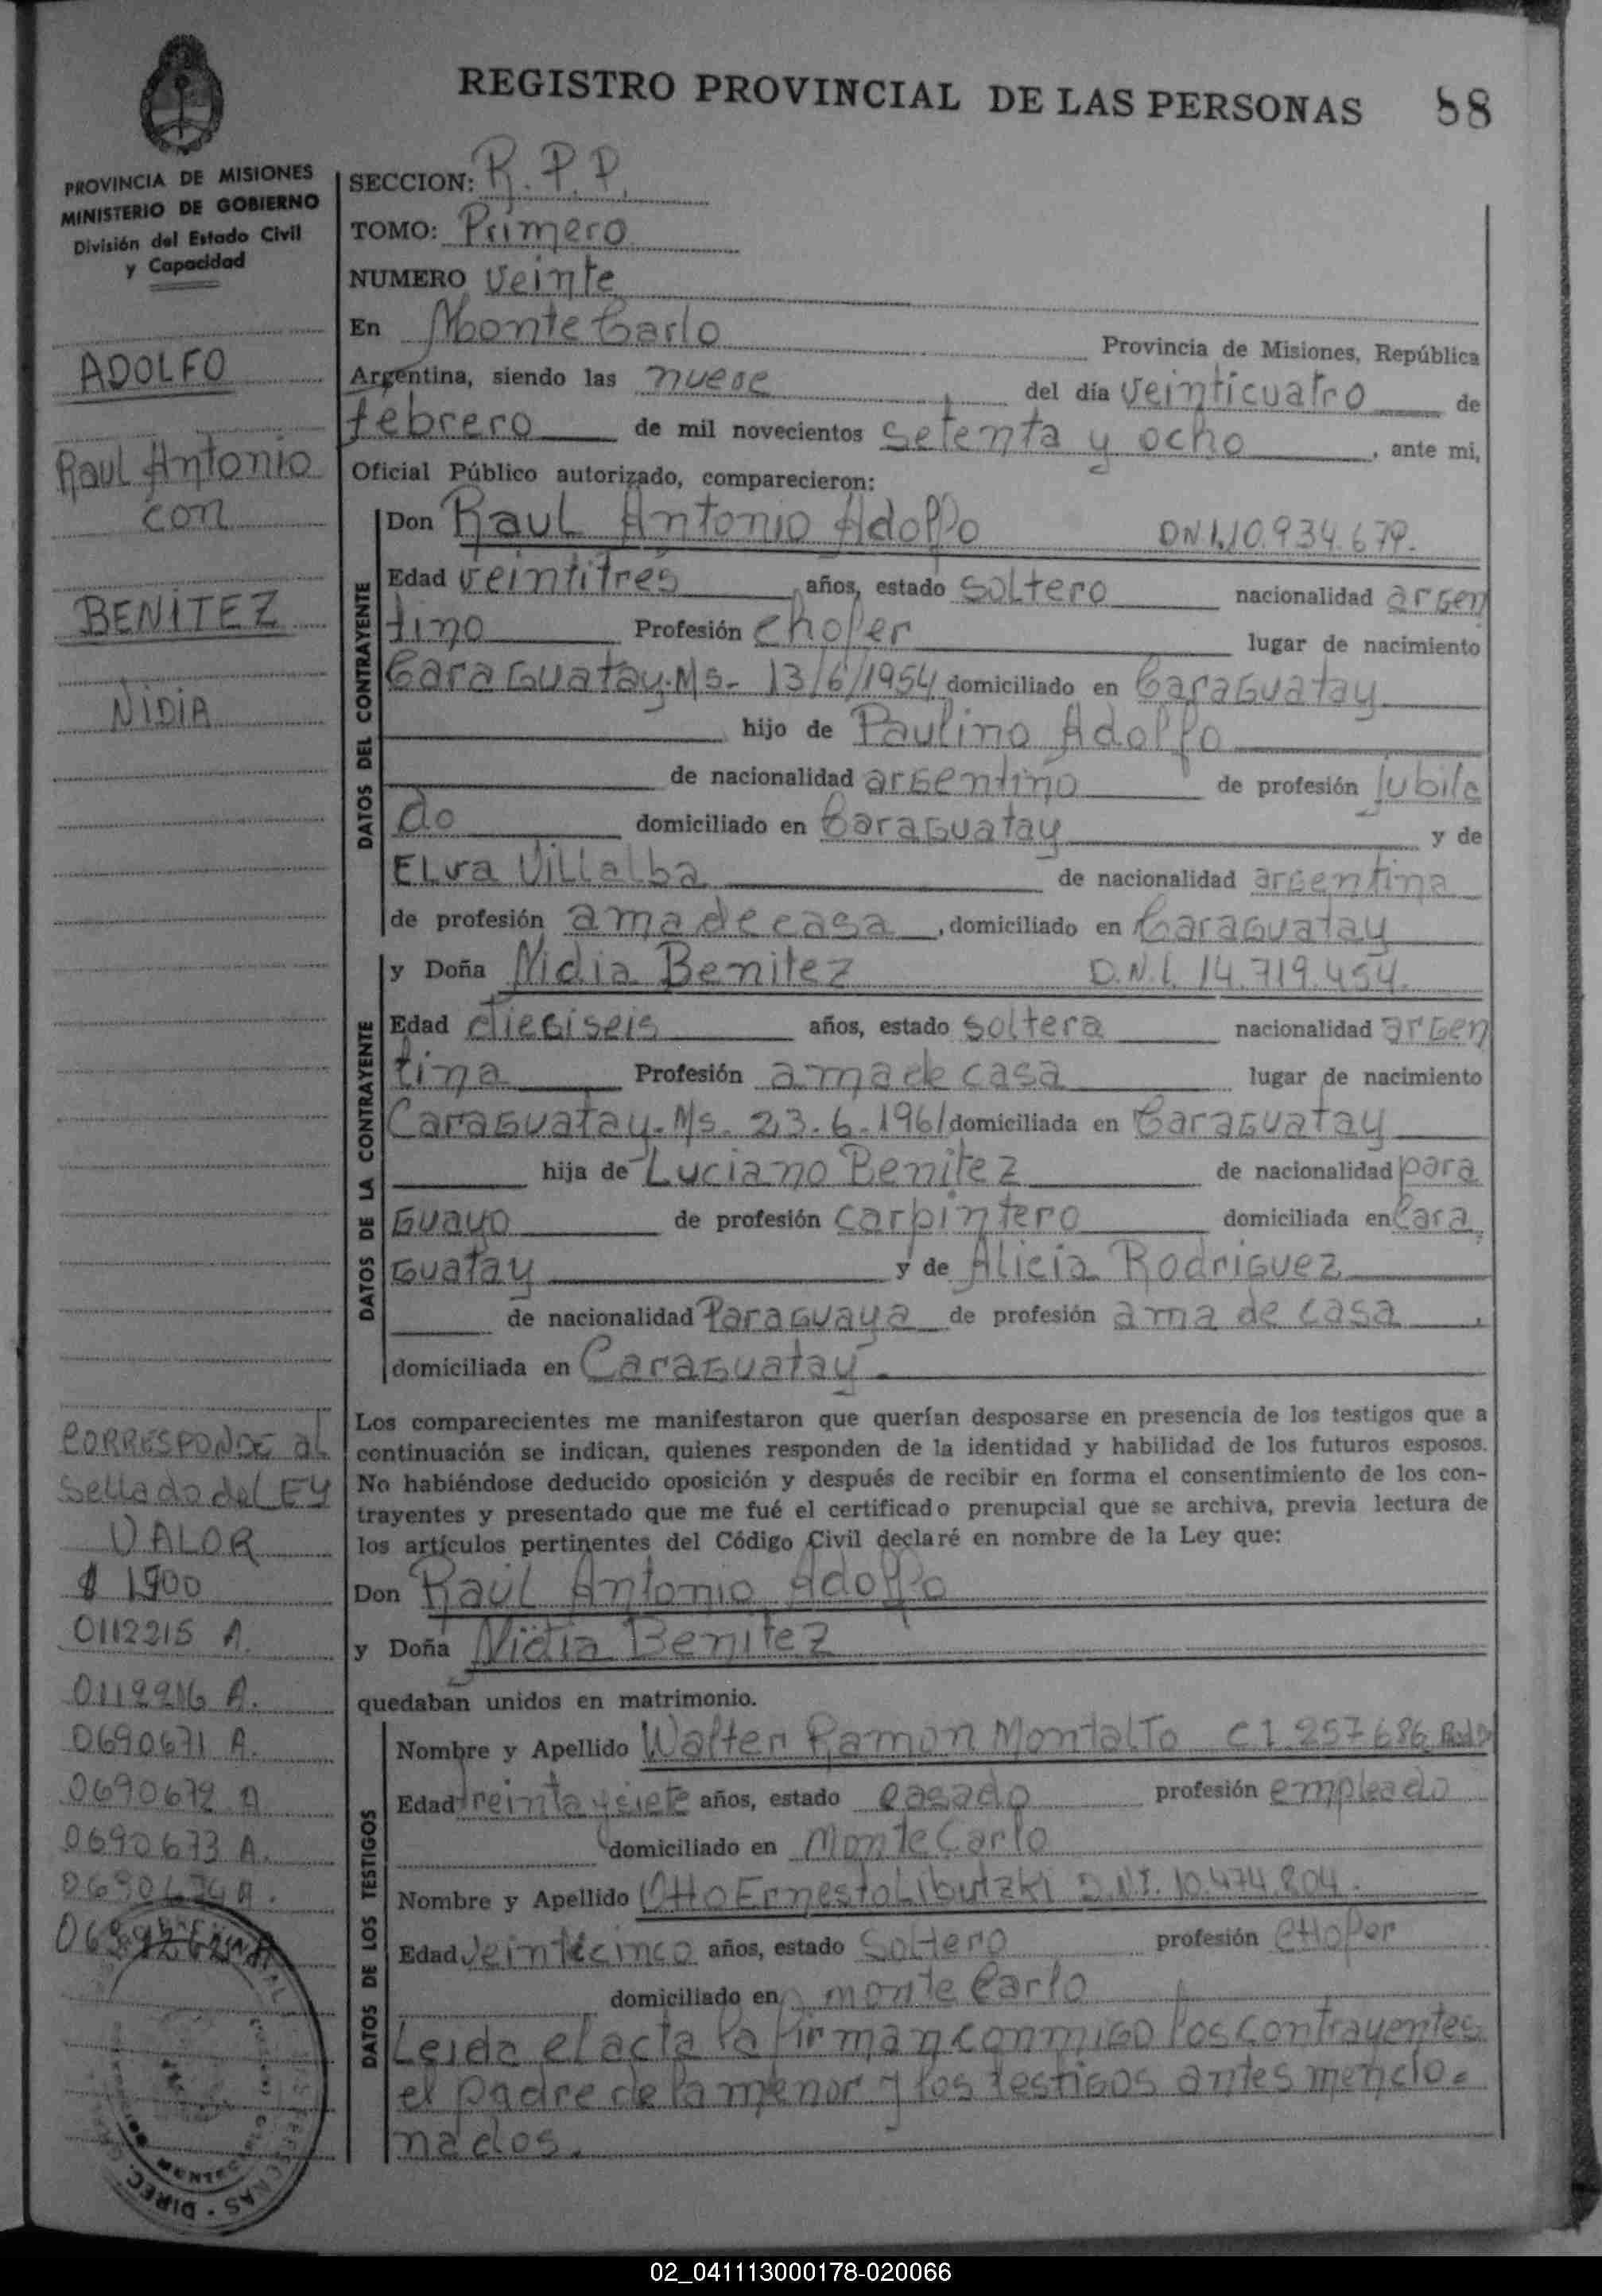 REGISTRO PROVINCIAL DE LAS PERSONAS 88
PROVINCIA DE MISIONES
MINISTERIO DE GOBIERNO
División del Estado Civil
y Capacidad
ADOLFO
Raul Antonio
con
BENITEZ
NIDIA
CORRESPONDE al
Sellado del EY
VALOR
$ 1500
0112215 A.
0112216 A.
0690671 A.
0690672 A
0690673 A.
0690674 A.
SECCION: R.P.P.
TOMO: Primero
NUMERO veinte
En Monte Carlo Provincia de Misiones, República
Argentina, siendo las nueve del día veinticuatro de
febrero de mil novecientos setenta y ocho, ante mi,
Oficial Público autorizado, comparecieron:
DATOS DEL CONTRAYENTE
Don Raul Antonio Adolfo DNI.10.934.679.
Edad veintitres años, estado soltero nacionalidad argen
tino Profesión chofer lugar de nacimiento
Caraguatay.Ms- 13/6/1954 domiciliado en Caraguatay
hijo de Paulino Adolfo
de nacionalidad argentino de profesión Jubila
do domiciliado en Caraguatay y de
Elva Villalba de nacionalidad argentina
de profesión ama de casa, domiciliado en Caraguatay
DATOS DE LA CONTRAYENTE
y Doña Nidia Benitez D.N.I. 14.719.454.
Edad dieciseis años, estado soltera nacionalidad argen
tina Profesión ama de casa lugar de nacimiento
Caraguatay.Ms. 23.6.1961 domiciliada en Caraguatay
hija de Luciano Benitez de nacionalidad para
guayo de profesión carpintero domiciliada en Cara
guatay y de Alicia Rodriguez
de nacionalidad Paraguaya de profesión ama de casa,
domiciliada en Caraguatay.
Los comparecientes me manifestaron que querían desposarse en presencia de los testigos que a
continuación se indican, quienes responden de la identidad y habilidad de los futuros esposos.
No habiéndose deducido oposición y después de recibir en forma el consentimiento de los con-
trayentes y presentado que me fué el certificado prenupcial que se archiva, previa lectura de
los artículos pertinentes del Código Civil declaré en nombre de la Ley que:
Don Raúl Antonio Adolfo
y Doña Nidia Benitez
quedaban unidos en matrimonio.
DATOS DE LOS TESTIGOS
Nombre y Apellido Walter Ramon Montalto C I. 257686
Edad treinta y siete años, estado casado profesión empleado
domiciliado en Monte Carlo
Nombre y Apellido Otto Ernesto Libutzki D.N.I. 10.474.804.
Edad veinticinco años, estado soltero profesión chofer
domiciliado en monte Carlo
Leida el acta la firman conmigo los contrayentes
el padre de la menor y los testigos antes mencio-
nados.
02_041113000178-020066